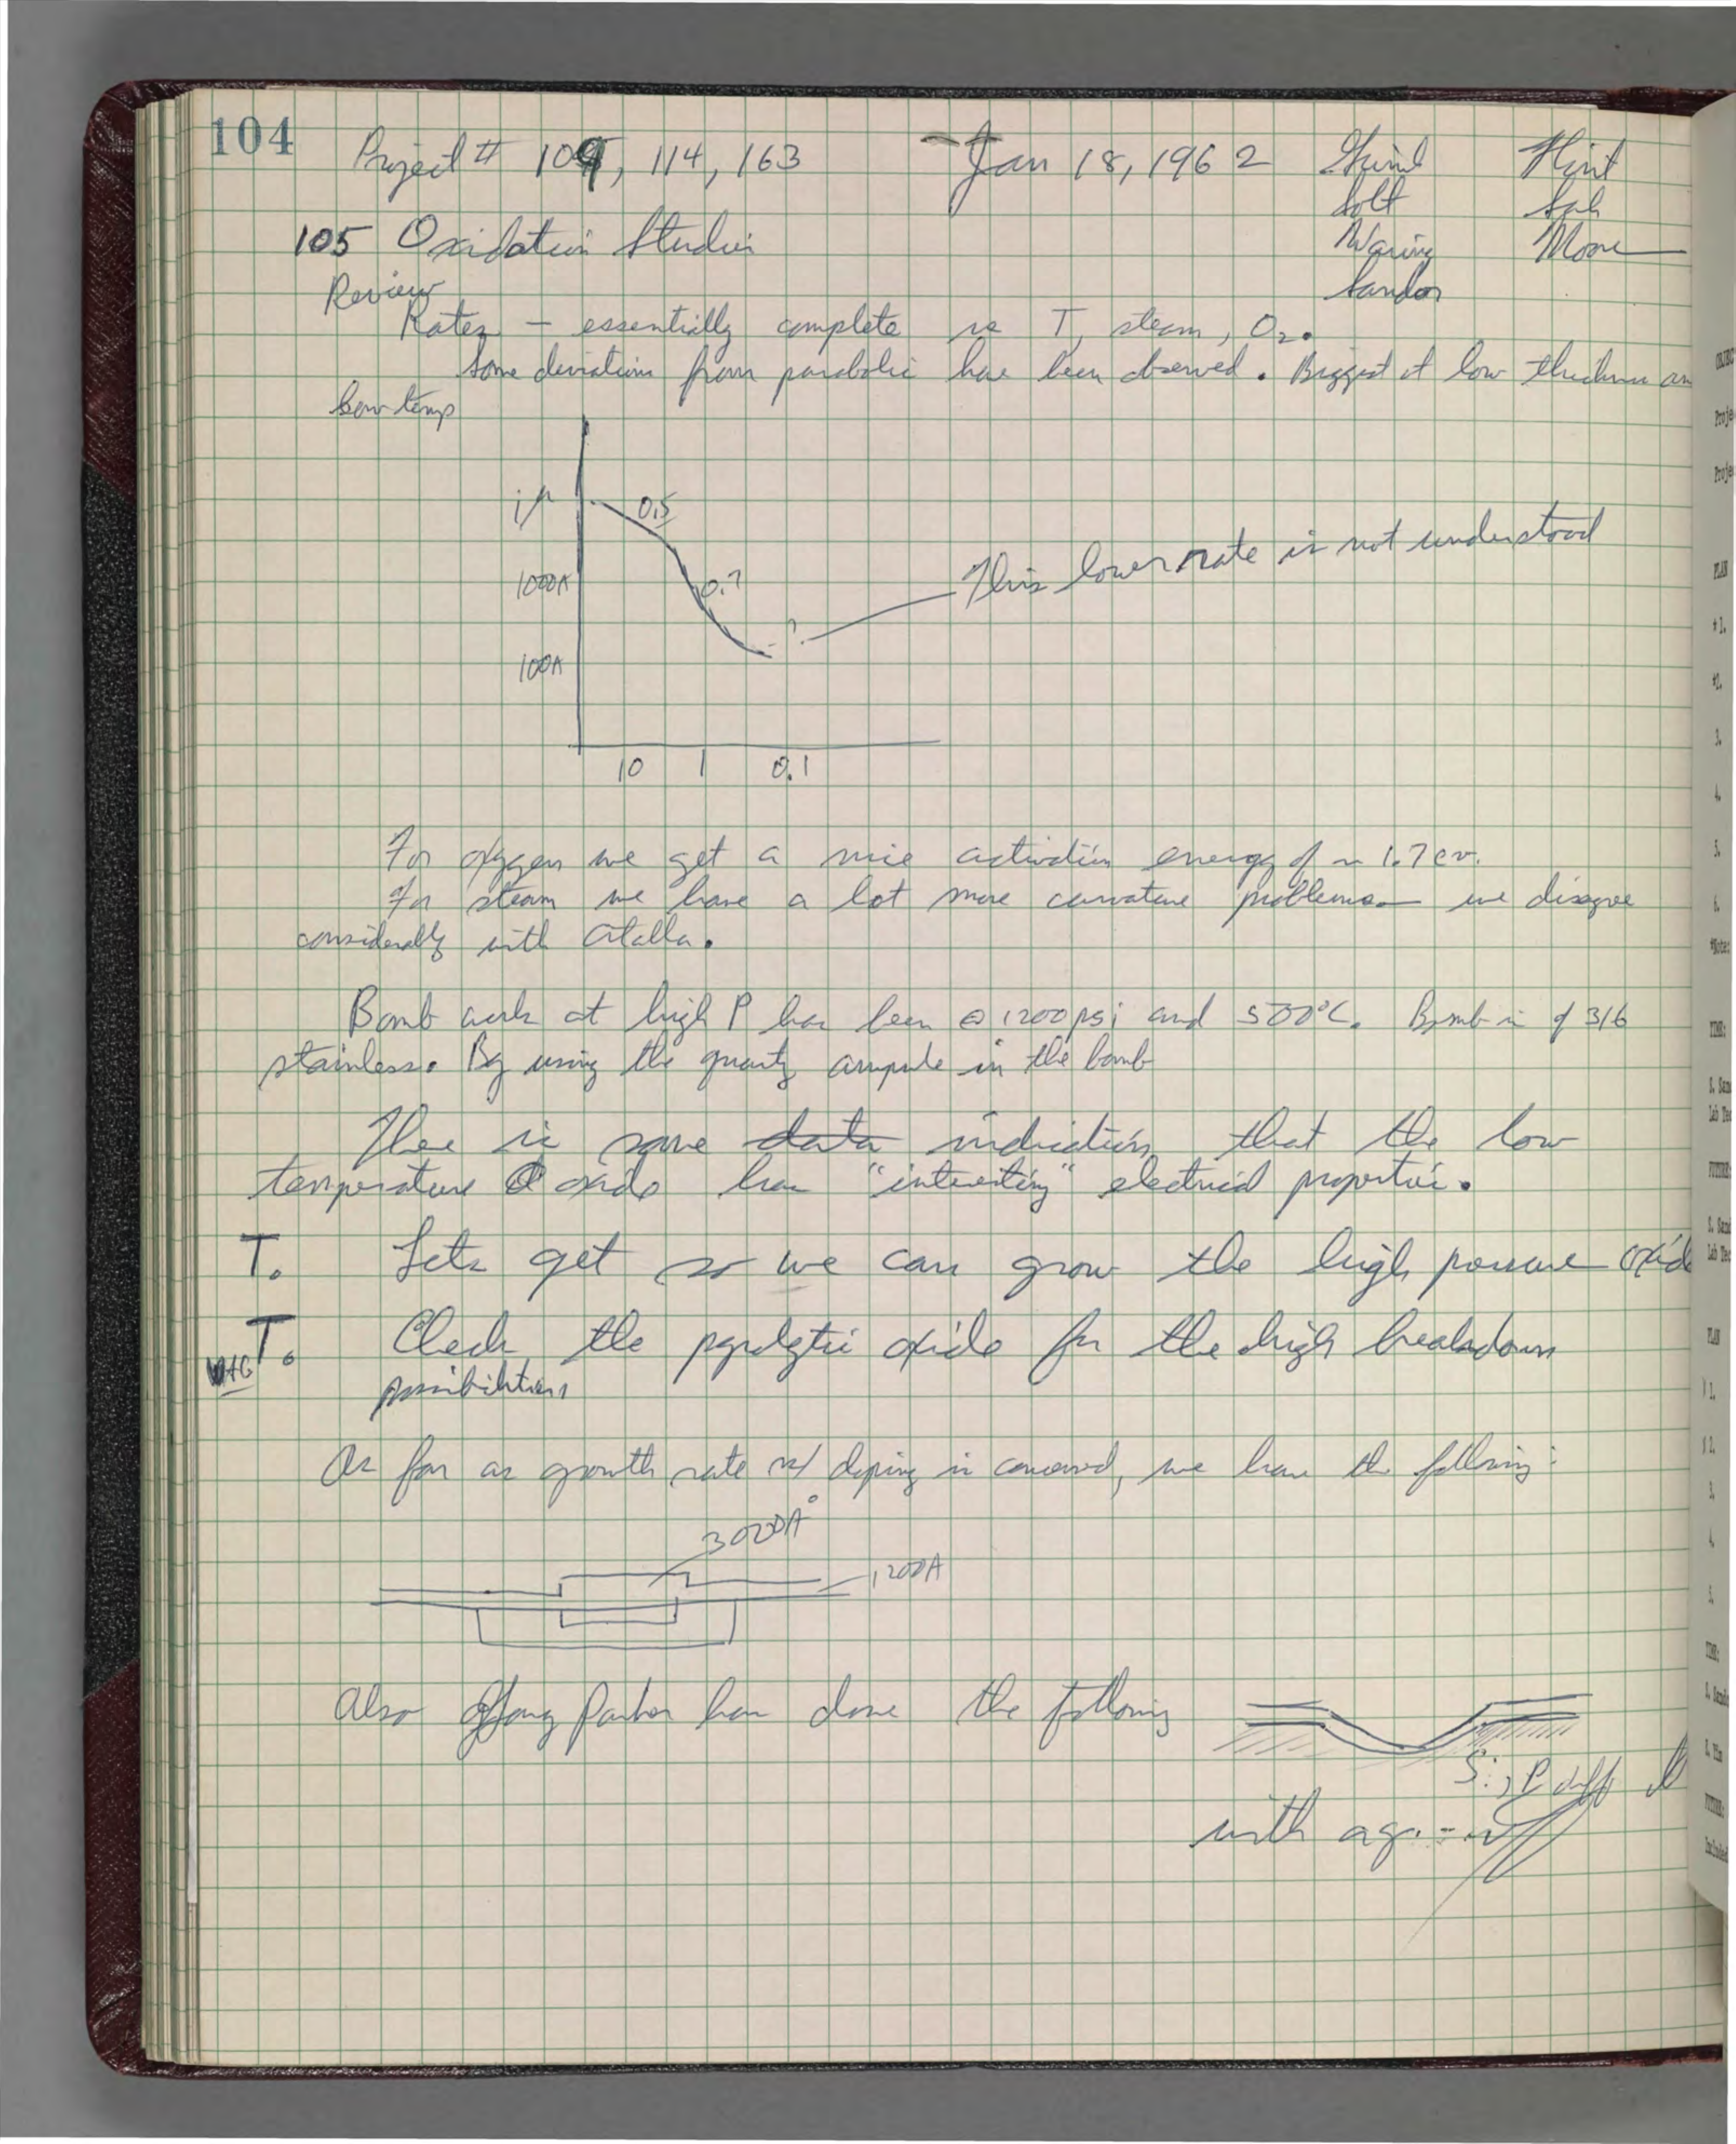 104
Project # 109, 114, 163
Jan 18, 1962
Hunt
Sah
Waring
Moore
Sandor
105 Oxidation Studies
Review
Rates — essentially complete re T, steam, O2.
Some deviations from parabolic have been observed. Biggest at low thickness an
low temp
1μ
0.5
1000A
0.7
100A
?
This lower rate is not understood
10 1 0.1
For oxygen we get a nice activation energy of ~ 1.7 ev.
For steam we have a lot more curvature problems — we disagree
considerably with Atalla.
Bomb work at high P has been @ 1200 psi and 500°C. Bomb is of 316
stainless. By using the quartz ampule in the bomb
There is some data indication that the low
temperature oxide has "interesting" electrical properties.
T. Lets get so we can grow the high pressure oxide
T. Check the pyrolytic oxide for the high breakdown
possibilities
As far as growth rate w/ doping is concerned, we have the following:
3000A°
1200A
Also Parker has done the following
Si, P diff
with